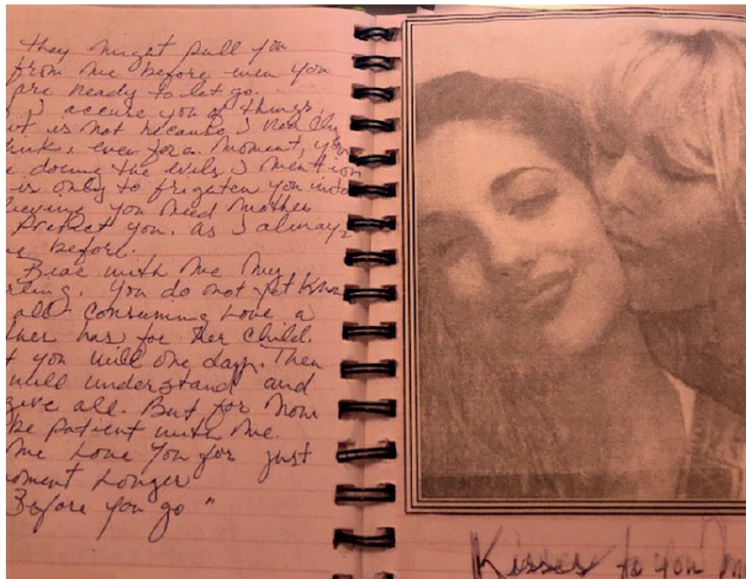 they might pull you
from me before even you
are ready to let go.
I accuse you of things,
it is not because I really
think, even for a moment, you
doing the evils I mention
is only to frigaten you into
you need Mother
Protect you. as I always
before.
Bear with me my
You do not yet know
all consuming Love a
has for Her child.
you will one day. Then
will understand and
all. But for now
be patient with me.
me Love you for just
moment Longer
Before you go "
Kisses to you